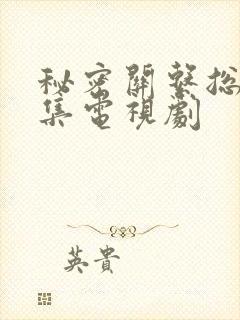 秘密關繫總
集電視劇
英貴